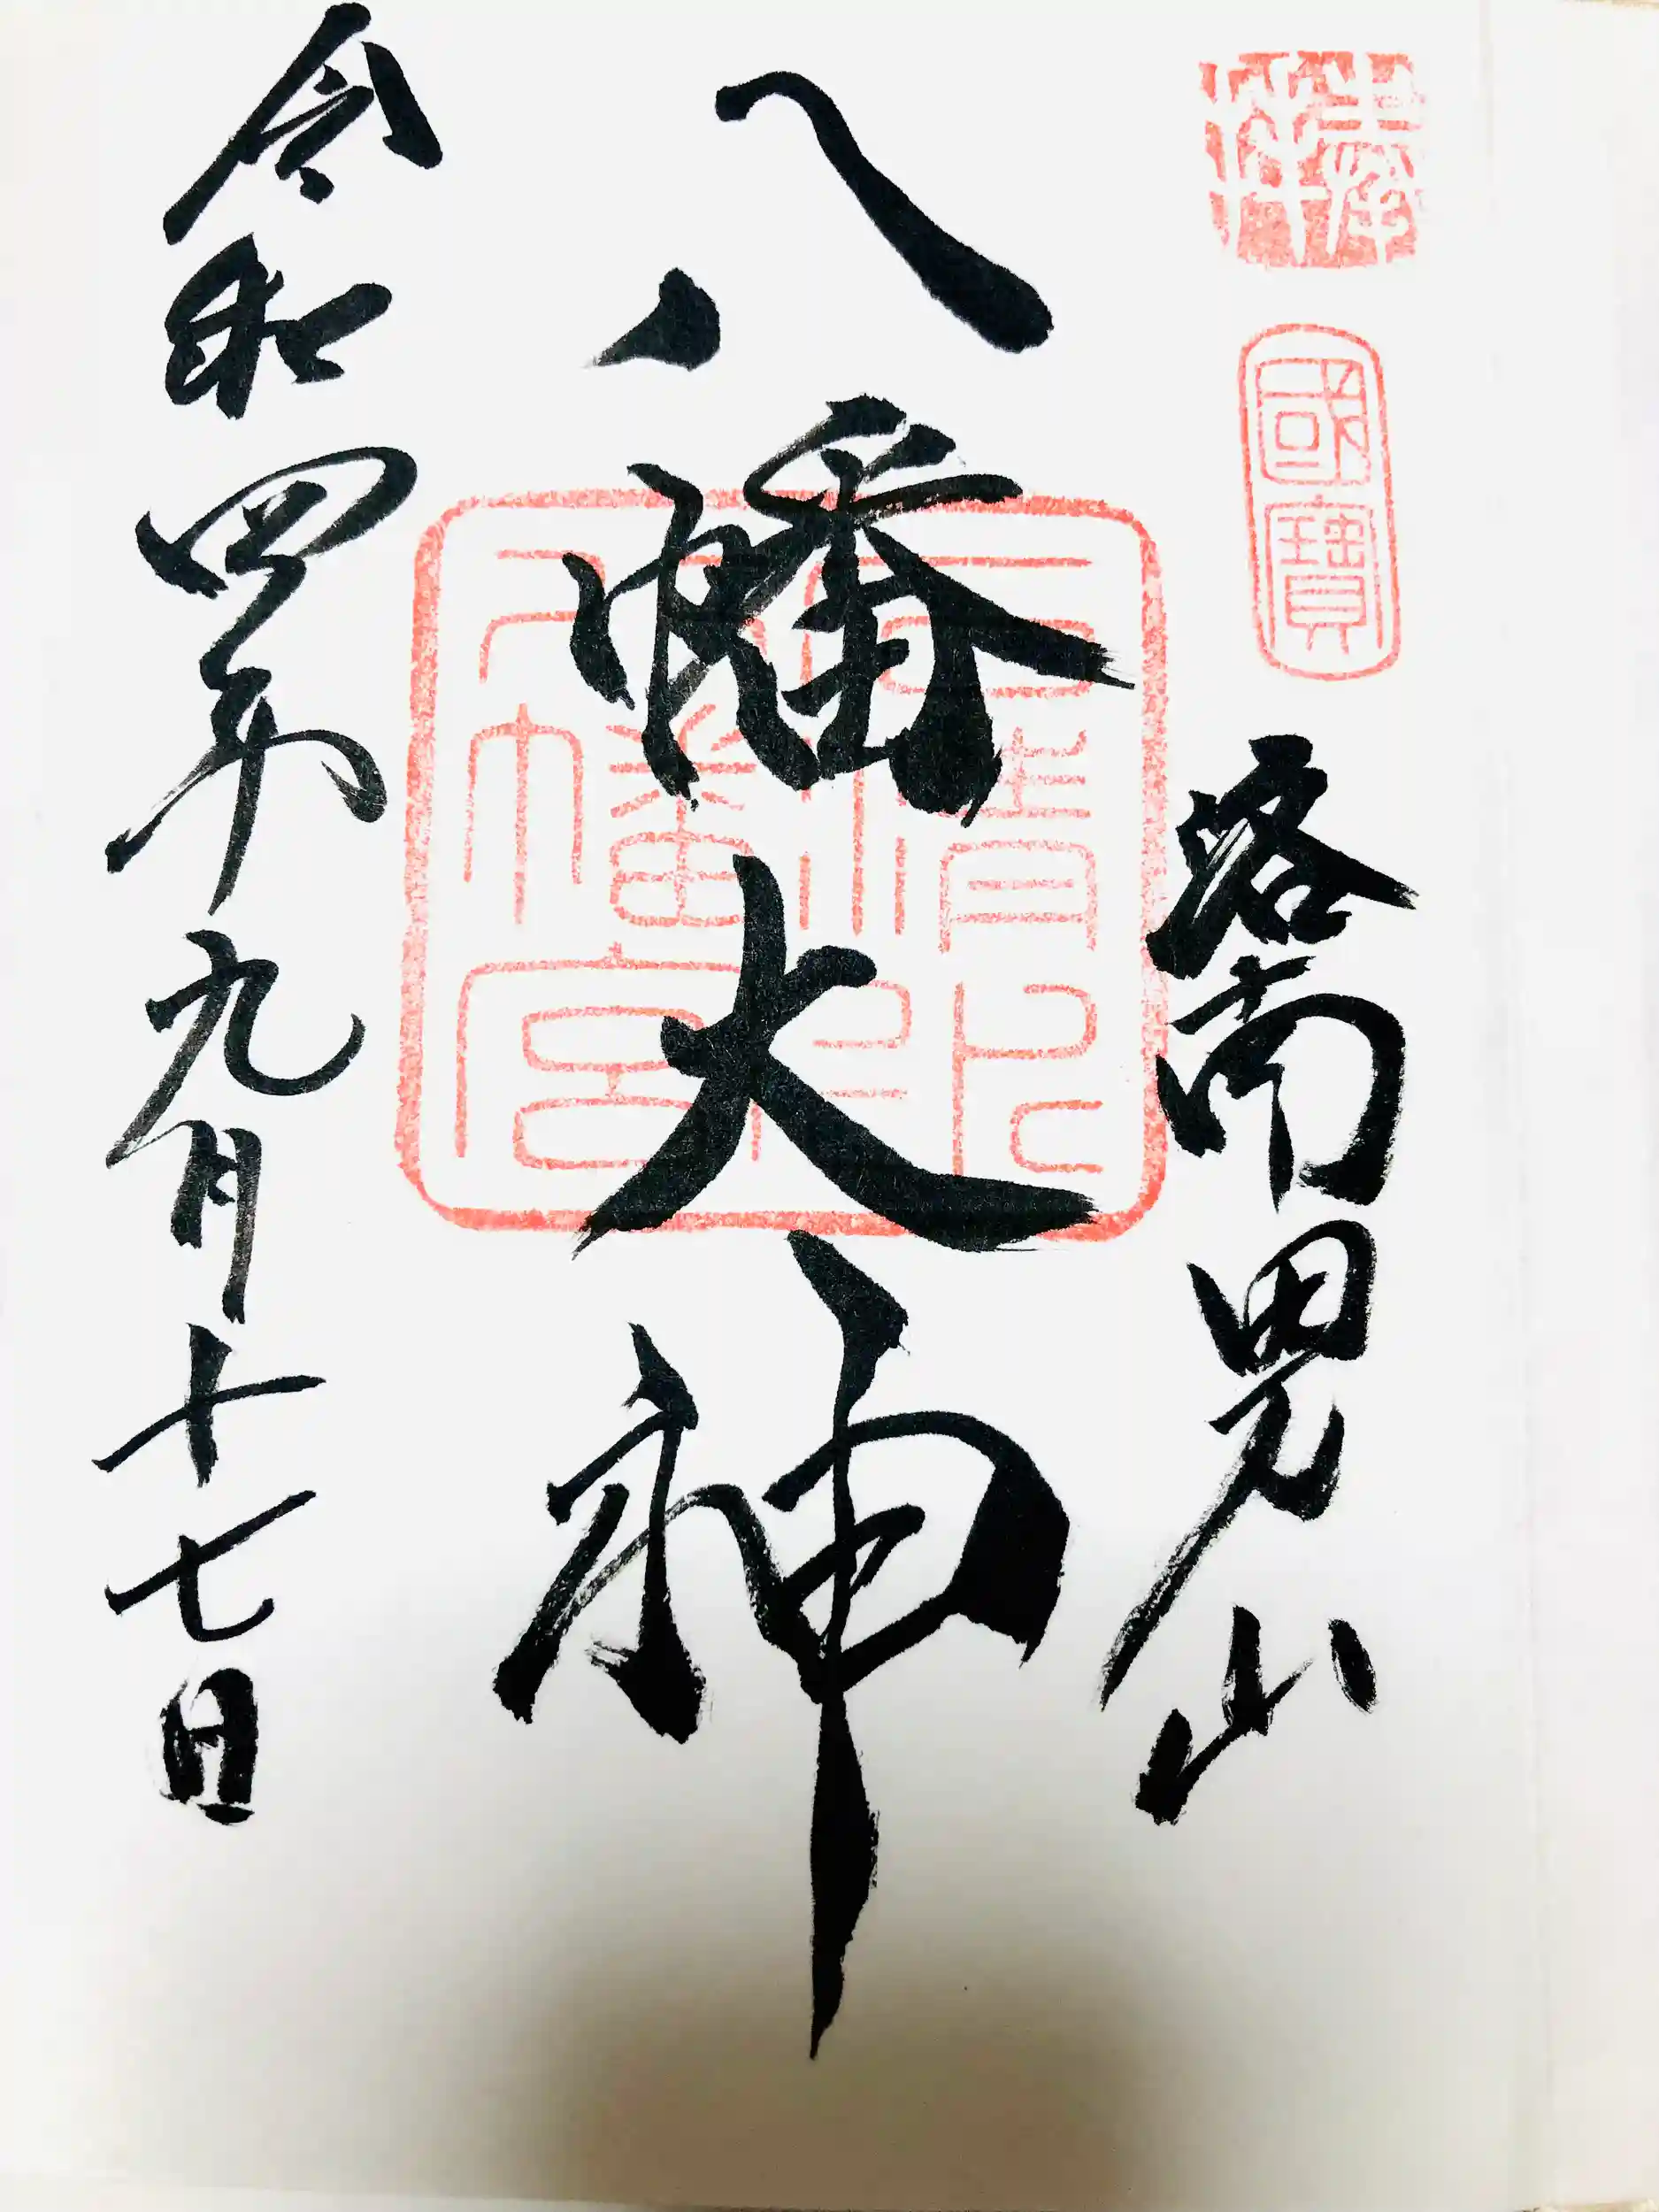 奉拝
國寶
洛南男山
八幡大神
石清水八幡宮
令和四年九月十七日